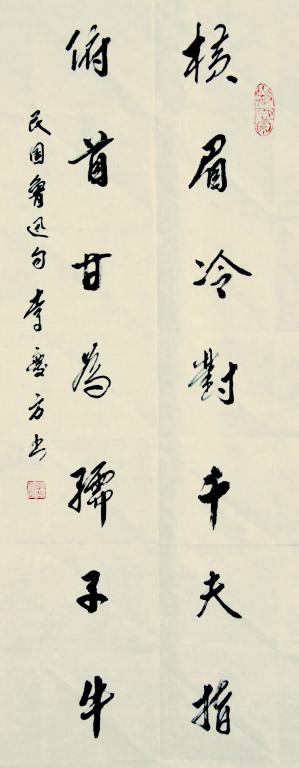 横眉冷對千夫指
俯首甘為孺子牛
民国鲁迅句李慶方书